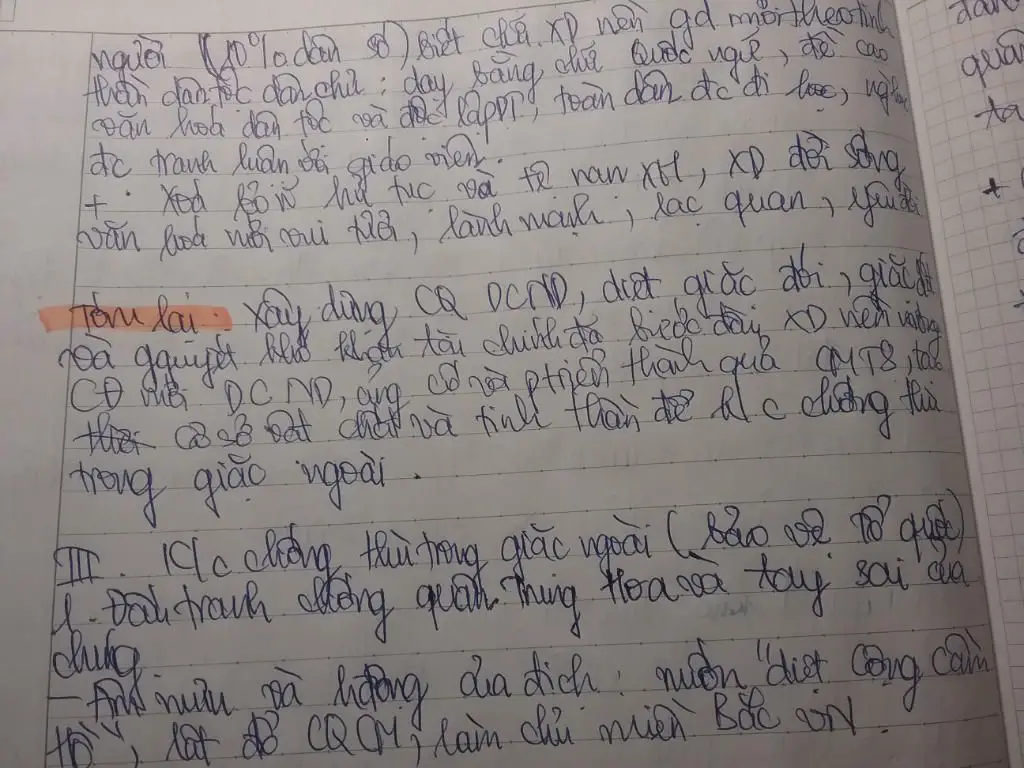 người (10% dân số) biết chữ. XD nền gd mới theo tinh
thần dân tộc dân chủ: dạy bằng chữ Quốc ngữ, đề cao
văn hoá dân tộc và độc lập DT, toàn dân đc đi học,
đc tranh luận với giáo viên.
+ Xoá bỏ hủ tục và tệ nạn XH, XD đời sống
văn hoá mới vui tươi, lành mạnh, lạc quan, yêu đời
Tóm lại: Xây dựng CQ DCND, diệt giặc đói, giặc dốt
và gquyết khó khăn tài chính đã bước đầy XD nền móng
CĐ mới DCND, củng cố và ptriển thành quả CMT8, tạo
cơ sở vật chất và tinh thần để K/c chống thù
trong giặc ngoài.
III. K/c chống thù trong giặc ngoài (Bảo vệ Tổ quốc)
1. Đấu tranh chống quân Trung Hoa và tay sai của
chúng
- Âm mưu và hđộng của địch: muốn "diệt Cộng cầm
Hồ", lật đổ CQCM, làm chủ miền Bắc VN.
dân
quân
ta
+